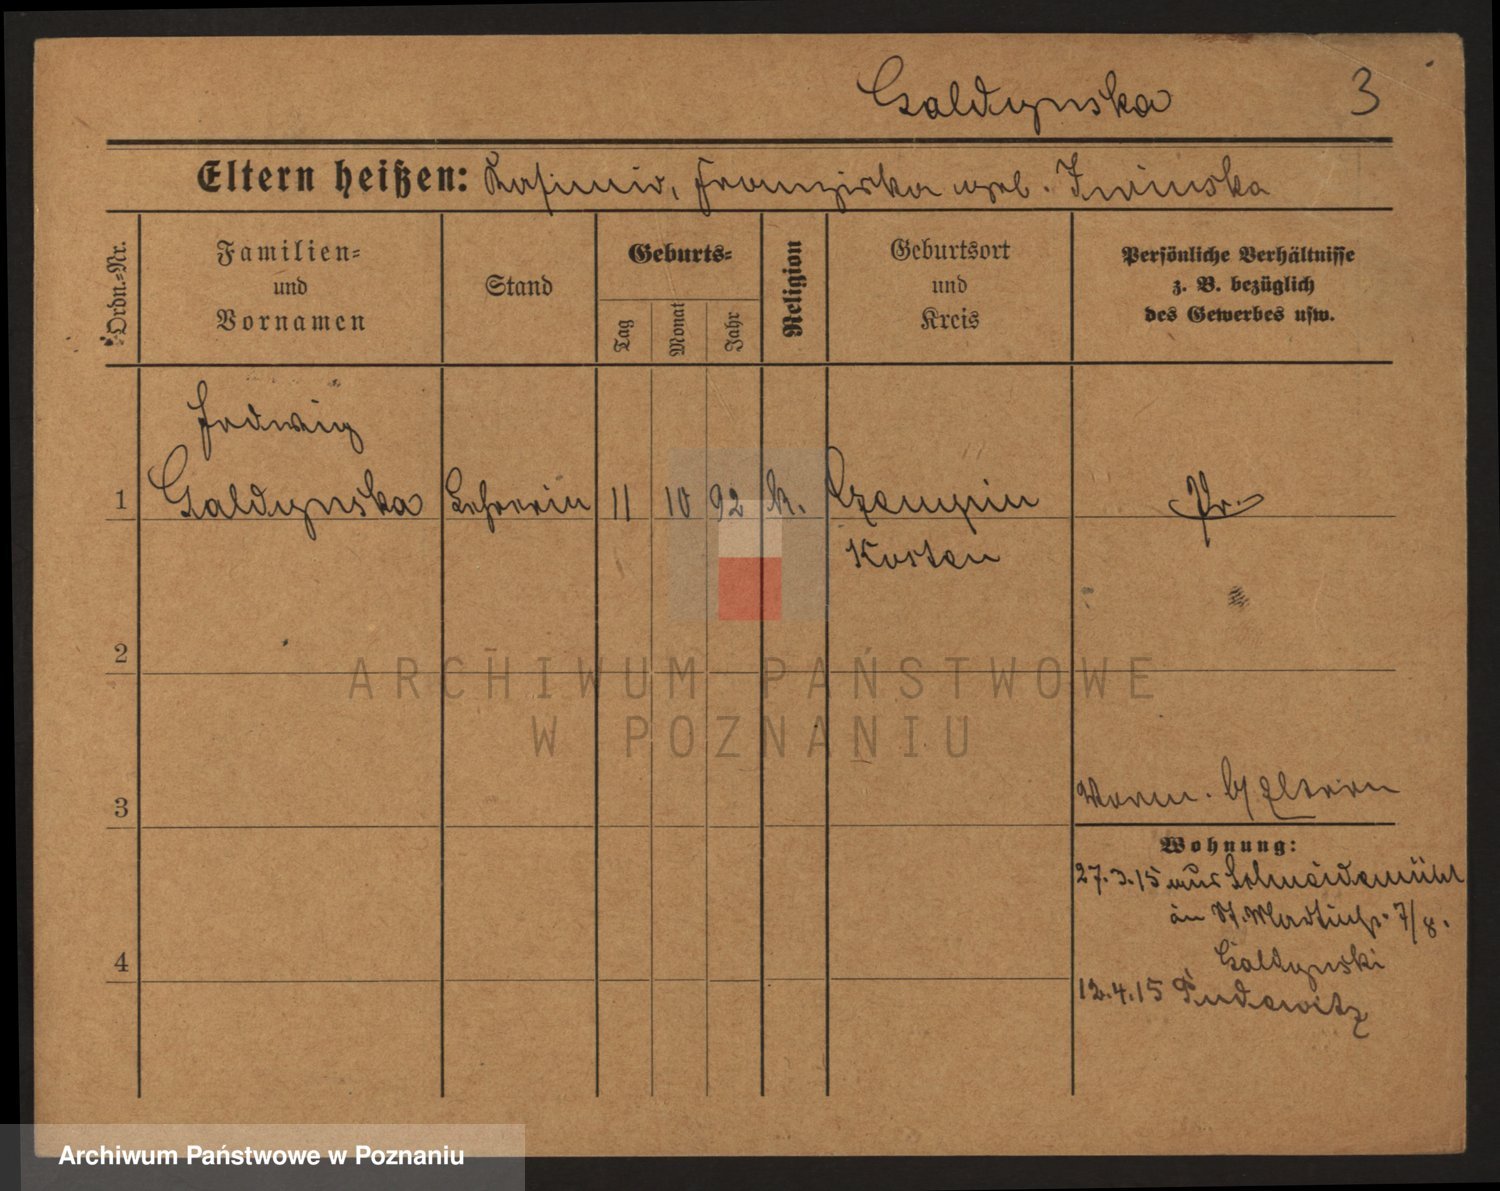 Galdynska 3
Eltern heißen: Kasimir, Franziska geb.
Ordn.-Nr.
Familien-
und
Vornamen
Stand
Geburts-
Tag
Monat
Jahr
Religion
Geburtsort
und
Kreis
Persönliche Verhältnisse
z. B. bezüglich
des Gewerbes usw.
Hedwig
1 Galdynska Lehrerin 11 10 92 k. Czempin Pr.
Kosten
2
ARCHIWUM PAŃSTWOWE
W POZNANIU
3
b/ Eltern
Wohnung:
27.3.15 aus Schneidemühl
in St. Martinstr. 7/8.
Galdynski
4
12.4.15 Pudewitz
Archiwum Państwowe w Poznaniu